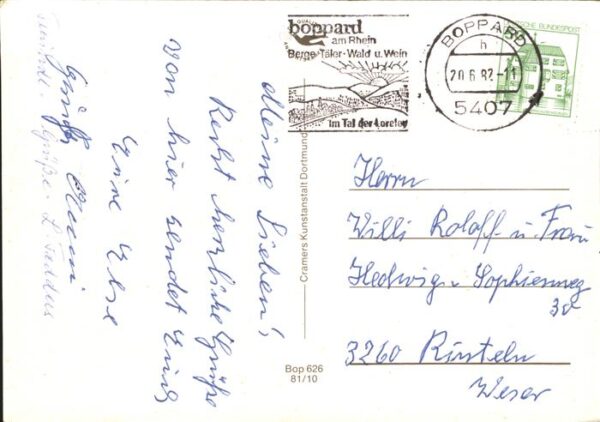 boppard
am Rhein
Berge·Täler·Wald u. Wein
im Tal der Loreley
BOPPARD
h
20.6.82-11
5407
DEUTSCHE BUNDESPOST
Meine Lieben!
Recht herzliche Grüße
von hier sendet Euch
Eure Else
Gruß
Grüße
Cramers Kunstanstalt Dortmund
Bop 626
81/10
Herrn
Willi Roloff u. Frau
Hedwig-Sophienweg
30
3260 Rinteln
Weser